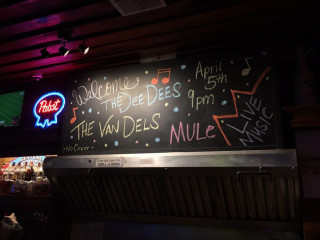 Pabst
Welcome
THE DEE DEES
THE VAN DELS
No Cover
MULE
April
5th
9pm
LIVE
MUSIC